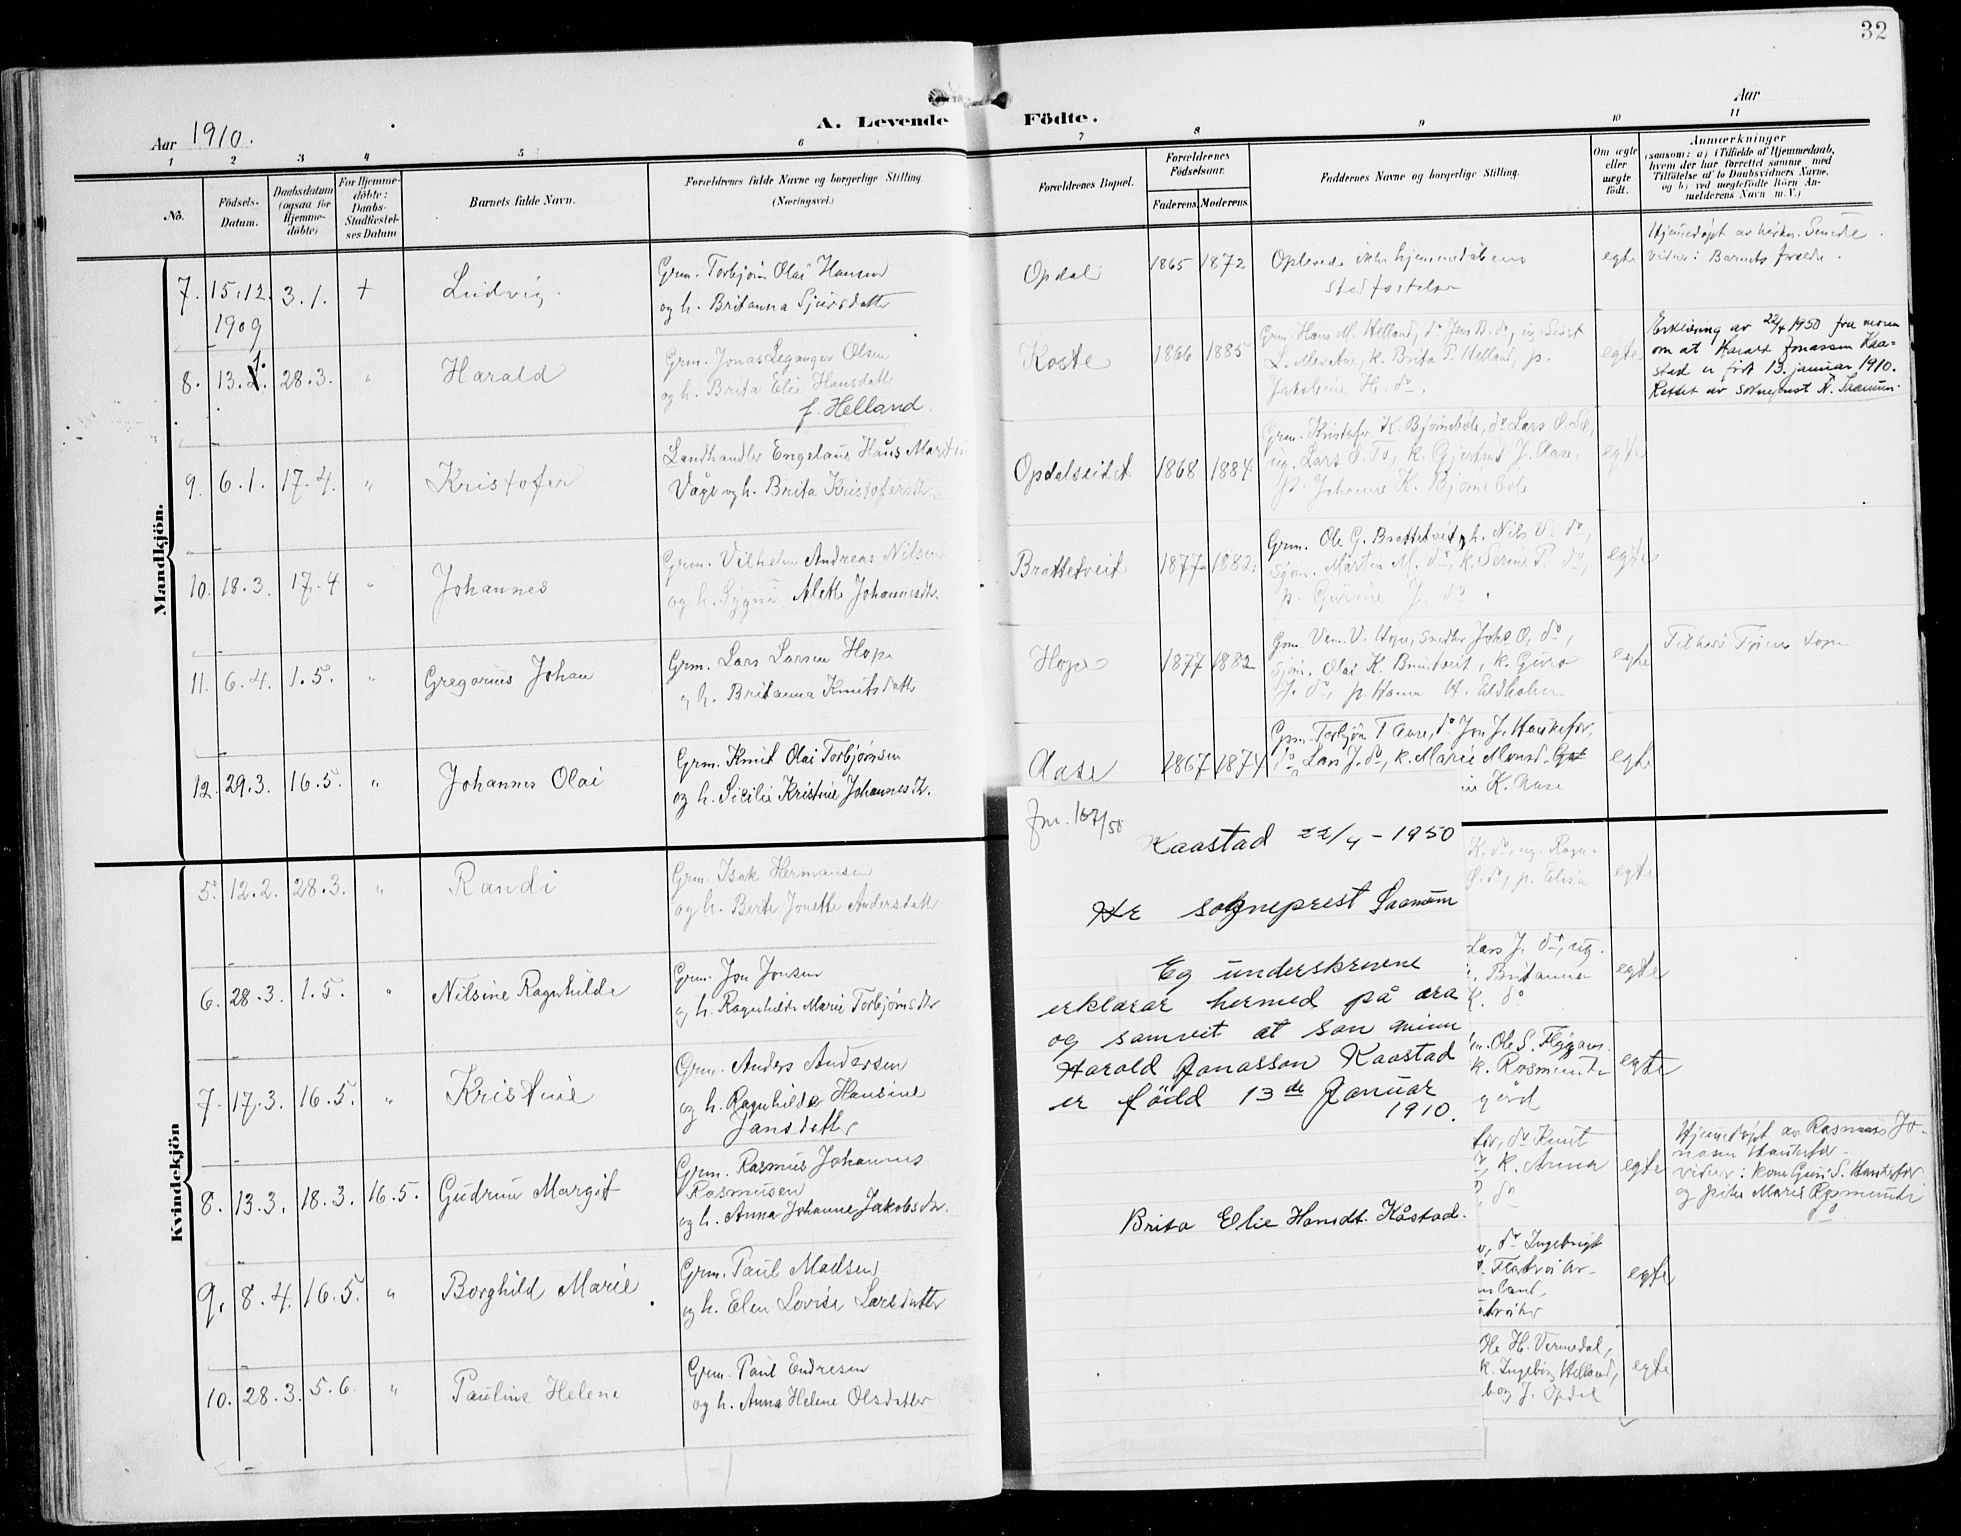 32
Aar 1910.
A. Levende Födte.
Aar
1 2 3 4 5 6 7 8 9 10 11
No.
Födsels-Datum.
Daabsdatum (ogsaa for Hjemme-döbte)
For Hjemme-döbte: Daabs-Stadfæstel-ses Datum
Barnets fulde Navn.
Forældrenes fulde Navne og borgerlige Stilling.
(Næringsvei.)
Forældrenes Bopæl.
Forældrenes Födselsaar.
Faderens. Moderens.
Faddernes Navne og borgerlige Stilling.
Om ægte eller uægte födt.
Anmærkninger
(saasom: a) i Tilfælde af Hjemmedaab,
hvem der har forrettet samme, med
Tilföielse af to Daabsvidners Navne,
og b) ved uægtefödte Börn An-
melderens Navn m. V.)
Mandkjön.
7. 15.12. 1909 3.1. + Ludvig.
Grm. Torbjörn Olai Hansen
og h. Britanna Sjursdatter
Opdal 1865 1872
Oplevede ikke hjemmedaabens
stadfæstelse
egte
Hjemmedöpt av
vidner: Barnets
8. 13.1. 28.3. " Harald
Grm. Jonas Leganger Olsen
og h. Brita Elie Hansdatter
f. Helland.
Koste 1866 1885
Grm. Hans M. Helland, do Jens B. do, ug. Sjurt
L. k. Brita P. Helland, p.
Jakobine H. do.
egte
Erklæring av 22/4 1950 fra moren
om at Harald Jonassen Kaa-
stad er født 13. januar 1910.
Rettet av sokneprest
9. 6.1. 17.4. " Kristofer
Landhandler Engelaus Haus Martin
Våge og h. Brita Kristofersdtr.
Opdalseidet 1868 1884
Grm. Kristofer K. Bjørnebole, do Lars O. Sæ,
ug. Lars O. do, k. Gjertrud J. Aase,
p. Johanne K. Bjørnebole
egte
10. 18.3. 17.4 " Johannes
Grm. Vilhelm Andreas Nilsen
og h. Sygna Alette Johannesdtr.
Brattetveit 1877 1882
Grm. Ole G. Brattetveit, h. Nils V. do,
sjøm. Martin M. do, k. Serine P. do,
p. Gurine J. do.
egte
11. 6.4. 1.5. " Gregorius Johan
Grm. Lars Larsen Hope
og h. Britanna Knutsdatter
Hope 1877 1882
Grm. V. Hope, smed Johs O. do,
sjøm. Olai K. k. Guro
J. do, p. Hanna H. Eldholm
egte
12. 29.3. 16.5. " Johannes Olai
Grm. Knut Olai Torbjørnsen
og h. Sicilie Kristine Johannesdtr.
Aase 1867 1874
Grm. Torbjørn T. Aase, do Jon J. Haukefær,
do Lars J. do, k. Marie Monsd.
K. Aase
egte
Kvindekjön
5. 12.2. 28.3. " Randi
Grm. Isak Hermansen
og h. Berte Jonette Andersdatter
K. do, ug. Ragn-
O. do, p. Elisa
egte
6. 28.3. 1.5. " Nilsine Ragnhilde
Grm. Jon Jonsen
og h. Ragnhilde Marie Torbjørnsdtr
Lars J. do, ug.
Britanna
K. do
egte
7. 17.3. 16.5. " Kristine
Grm. Anders Andersen
og h. Ragnhilde Hansine
Jansdatter
Ole S. Flygans-
k. Rosmunda
gård
egte
8. 13.3. 18.3. 16.5. Gudrun Margit
Grm. Rasmus Johannes
Rasmusen
og h. Anna Johanne Jakobsdtr.
før, do Knut
k. Anna
do
egte
Hjemmedöpt av Rasmus Jo-
nasen Haukefær
vidner: kone Guri S. Haukefær
og pike Marie
9. 8.4. 16.5. " Borghild Marie.
Grm. Paul Madsen
og h. Elen Lovise Larsdatter
do Ingebrigt
egte
10. 28.3. 5.6. " Pauline Helene
Grm. Paul Endresen
og h. Anna Helene Olsdatter
Ole H. Vermedal,
k. Ingebjørg Helland,
J. Opdal
egte
Jnr. 167/50
Kaastad 22/4 - 1950
Hr sogneprest Saanum
Eg underskrevne
erklærar hermed på æra
og samvet at son minn
Harald Jonasson Kaastad
er född 13 de Januar
1910.
Brita Elie Hansdt. Kåstad.